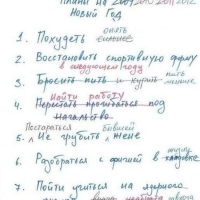 Планы на 2009 2010 2011 2012
Новый Год
опять
1. Похудеть сильнее
2. Восстановить спортивную форму
в следующем году
3. Бросить пить и курить пить меньше
Найти работу
4. Перестать прогибаться под
начальство
Постараться бывшей
5. Не грубить жене
6. Разобраться с фигнёй в шкафу
7. Пойти учиться на ядерного